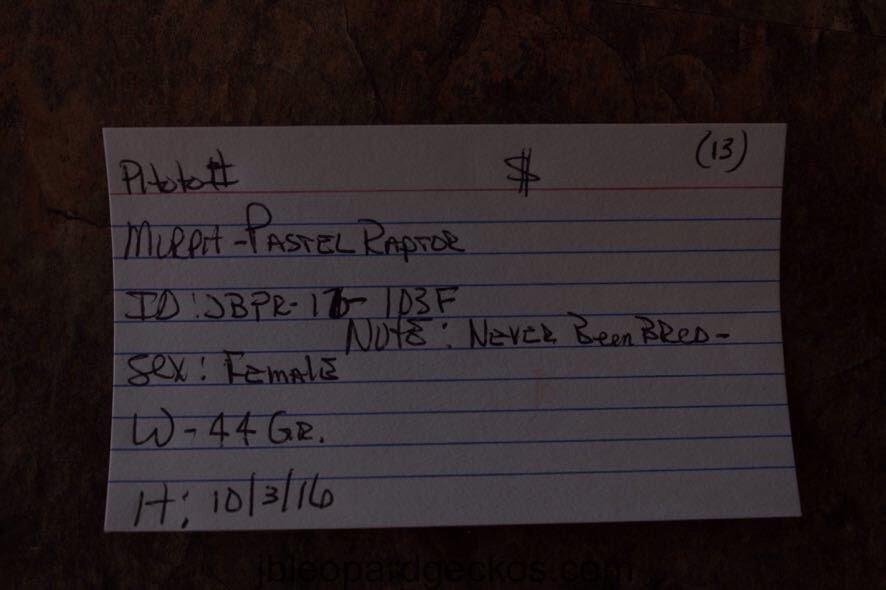 Photo# $ (13)
Morph - Pastel Raptor
ID: JBPR-16-103F
Note: Never Been Bred -
Sex: Female
W - 44 Gr.
H: 10/3/16
jbleopardgeckos.com